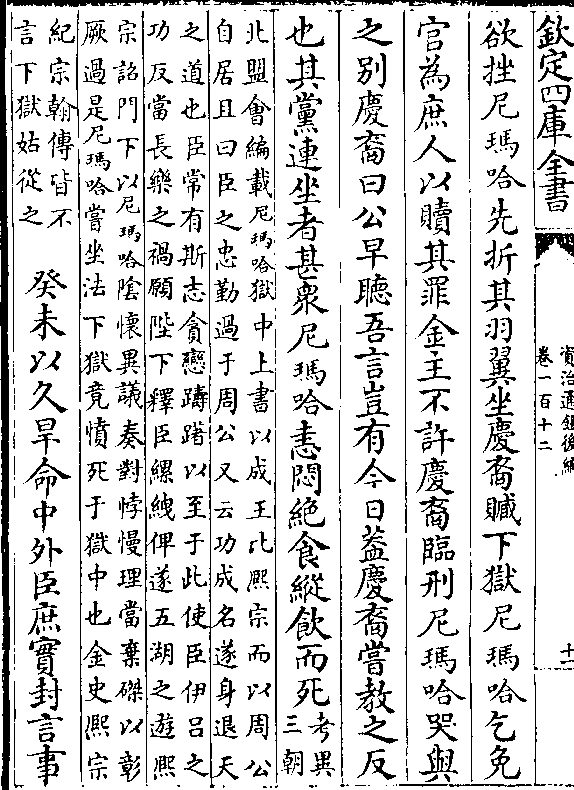 欽定四庫全書
資治通鑑後編
卷一百十二
十一
欲挫尼瑪哈先折其羽翼坐慶裔贓下獄尼瑪哈乞免
官為庶人以贖其罪金主不許慶裔臨刑尼瑪哈哭與
之別慶裔曰公早聽吾言豈有今日葢慶裔嘗教之反
也其黨連坐者甚衆尼瑪哈恚悶絶食縱飲而死
考異
三朝
北盟會編載尼瑪哈獄中上書以成王比熙宗而以周公
自居且曰臣之忠勤過于周公又云功成名遂身退天
之道也臣常有斯志貪戀躊躇以至于此使臣伊吕之
功反當長樂之禍願陛下釋臣縲絏俾遂五湖之遊熙
宗詔門下以尼瑪哈陰懷異議奏對悖慢理當棄磔以彰
厥過是尼瑪哈嘗坐法下獄竟憤死于獄中也金史熙宗
紀宗翰傳皆不
言下獄姑從之
癸未以久旱命中外臣庶實封言事